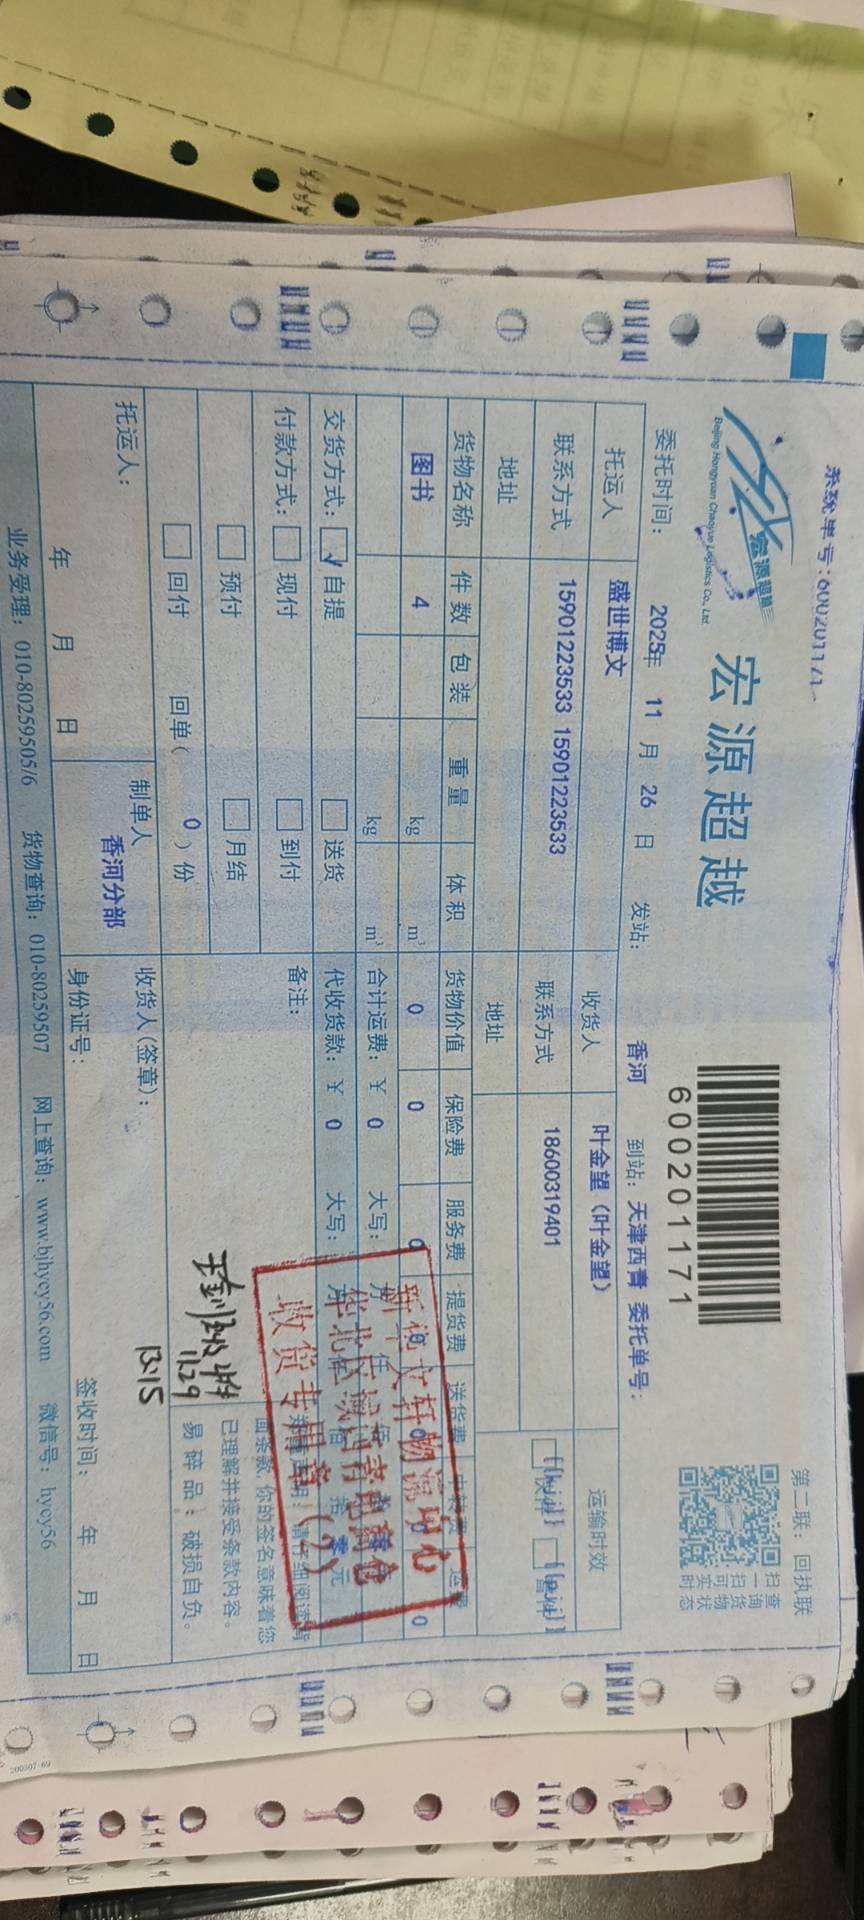 系统单号:600201171
第二联：回执联
宏源超越
Beijing Hongyuan Chaoyue Logistics Co., Ltd
宏源超越
600201171
扫一扫可实时
查询货物状态
委托时间： 2025年 11 月 26 日 发站： 香河 到站： 天津西青 委托单号：
托运人 盛世博文 收货人 叶金望（叶金望） 运输时效
联系方式 15901223533 15901223533 联系方式 18600319401
地址 地址
货物名称 件数 包装 重量 体积 货物价值 保险费 服务费 提货费 送货费 中转费 运费
图书 4 kg m³ 0 0 0 0 0 0 0
kg m³ 合计运费：￥ 0 大写：
交货方式： 自提 送货 代收货款：￥ 0 大写：
零 元
付款方式： 现付 到付 备注：
预付 月结
回付 回单（ 0 ）份
请仔细阅读背
面条款，你的签名意味着您
已理解并接受条款内容。
易碎品：破损自负。
新华文轩物流中心
收货专用章（2）
11.29
13:15
托运人： 制单人 收货人(签章)：
香河分部
年 月 日 身份证号： 签收时间： 年 月 日
业务受理：010-80259505/6 货物查询：010-80259507 网上查询：www.bjhycy56.com 微信号：hycy56
200307-69